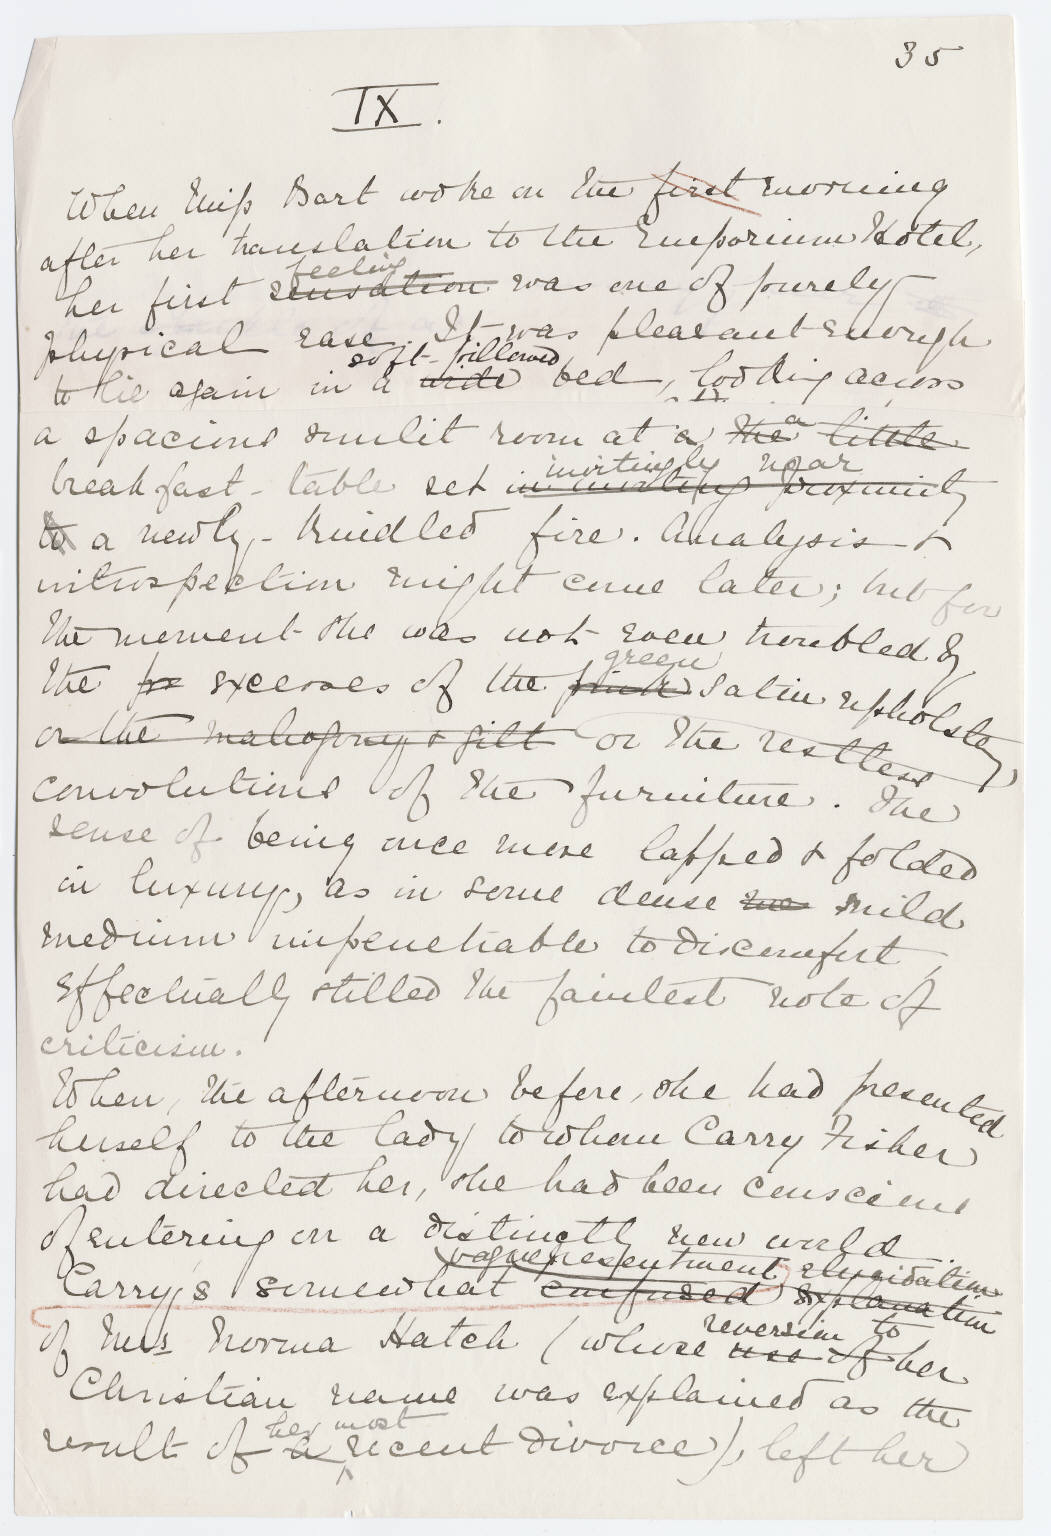 35
IX.
When Miss Bart woke on the first morning
after her translation to the Emporium Hotel,
feeling
her first sensation was one of purely
physical ease. It was pleasant enough
soft-pillowed
to lie again in a wide bed, looking across
a spacious sunlit room at a the a little
invitingly near
breakfast-table set in inviting proximity
to a newly-kindled fire. Analysis &
introspection might come later; but for
the moment she was not even troubled by
green
the excesses of the pink satin upholstery
or the mahogony & gilt or the restless
convolutions of the furniture. The
sense of being once more lapped & folded
in luxury, as in some dense mild
medium impenetrable to discomfort,
effectually stilled the faintest note of
criticism.
When, the afternoon before, she had presented
herself to the lady to whom Carry Fisher
had directed her, she had been conscious
of entering on a distinctly new world
vague presentment elucidation
Carry's somewhat confused explanation
reversion to
of Mrs Norma Hatch (whose use of her
Christian name was explained as the
her most
result of a recent divorce), left her